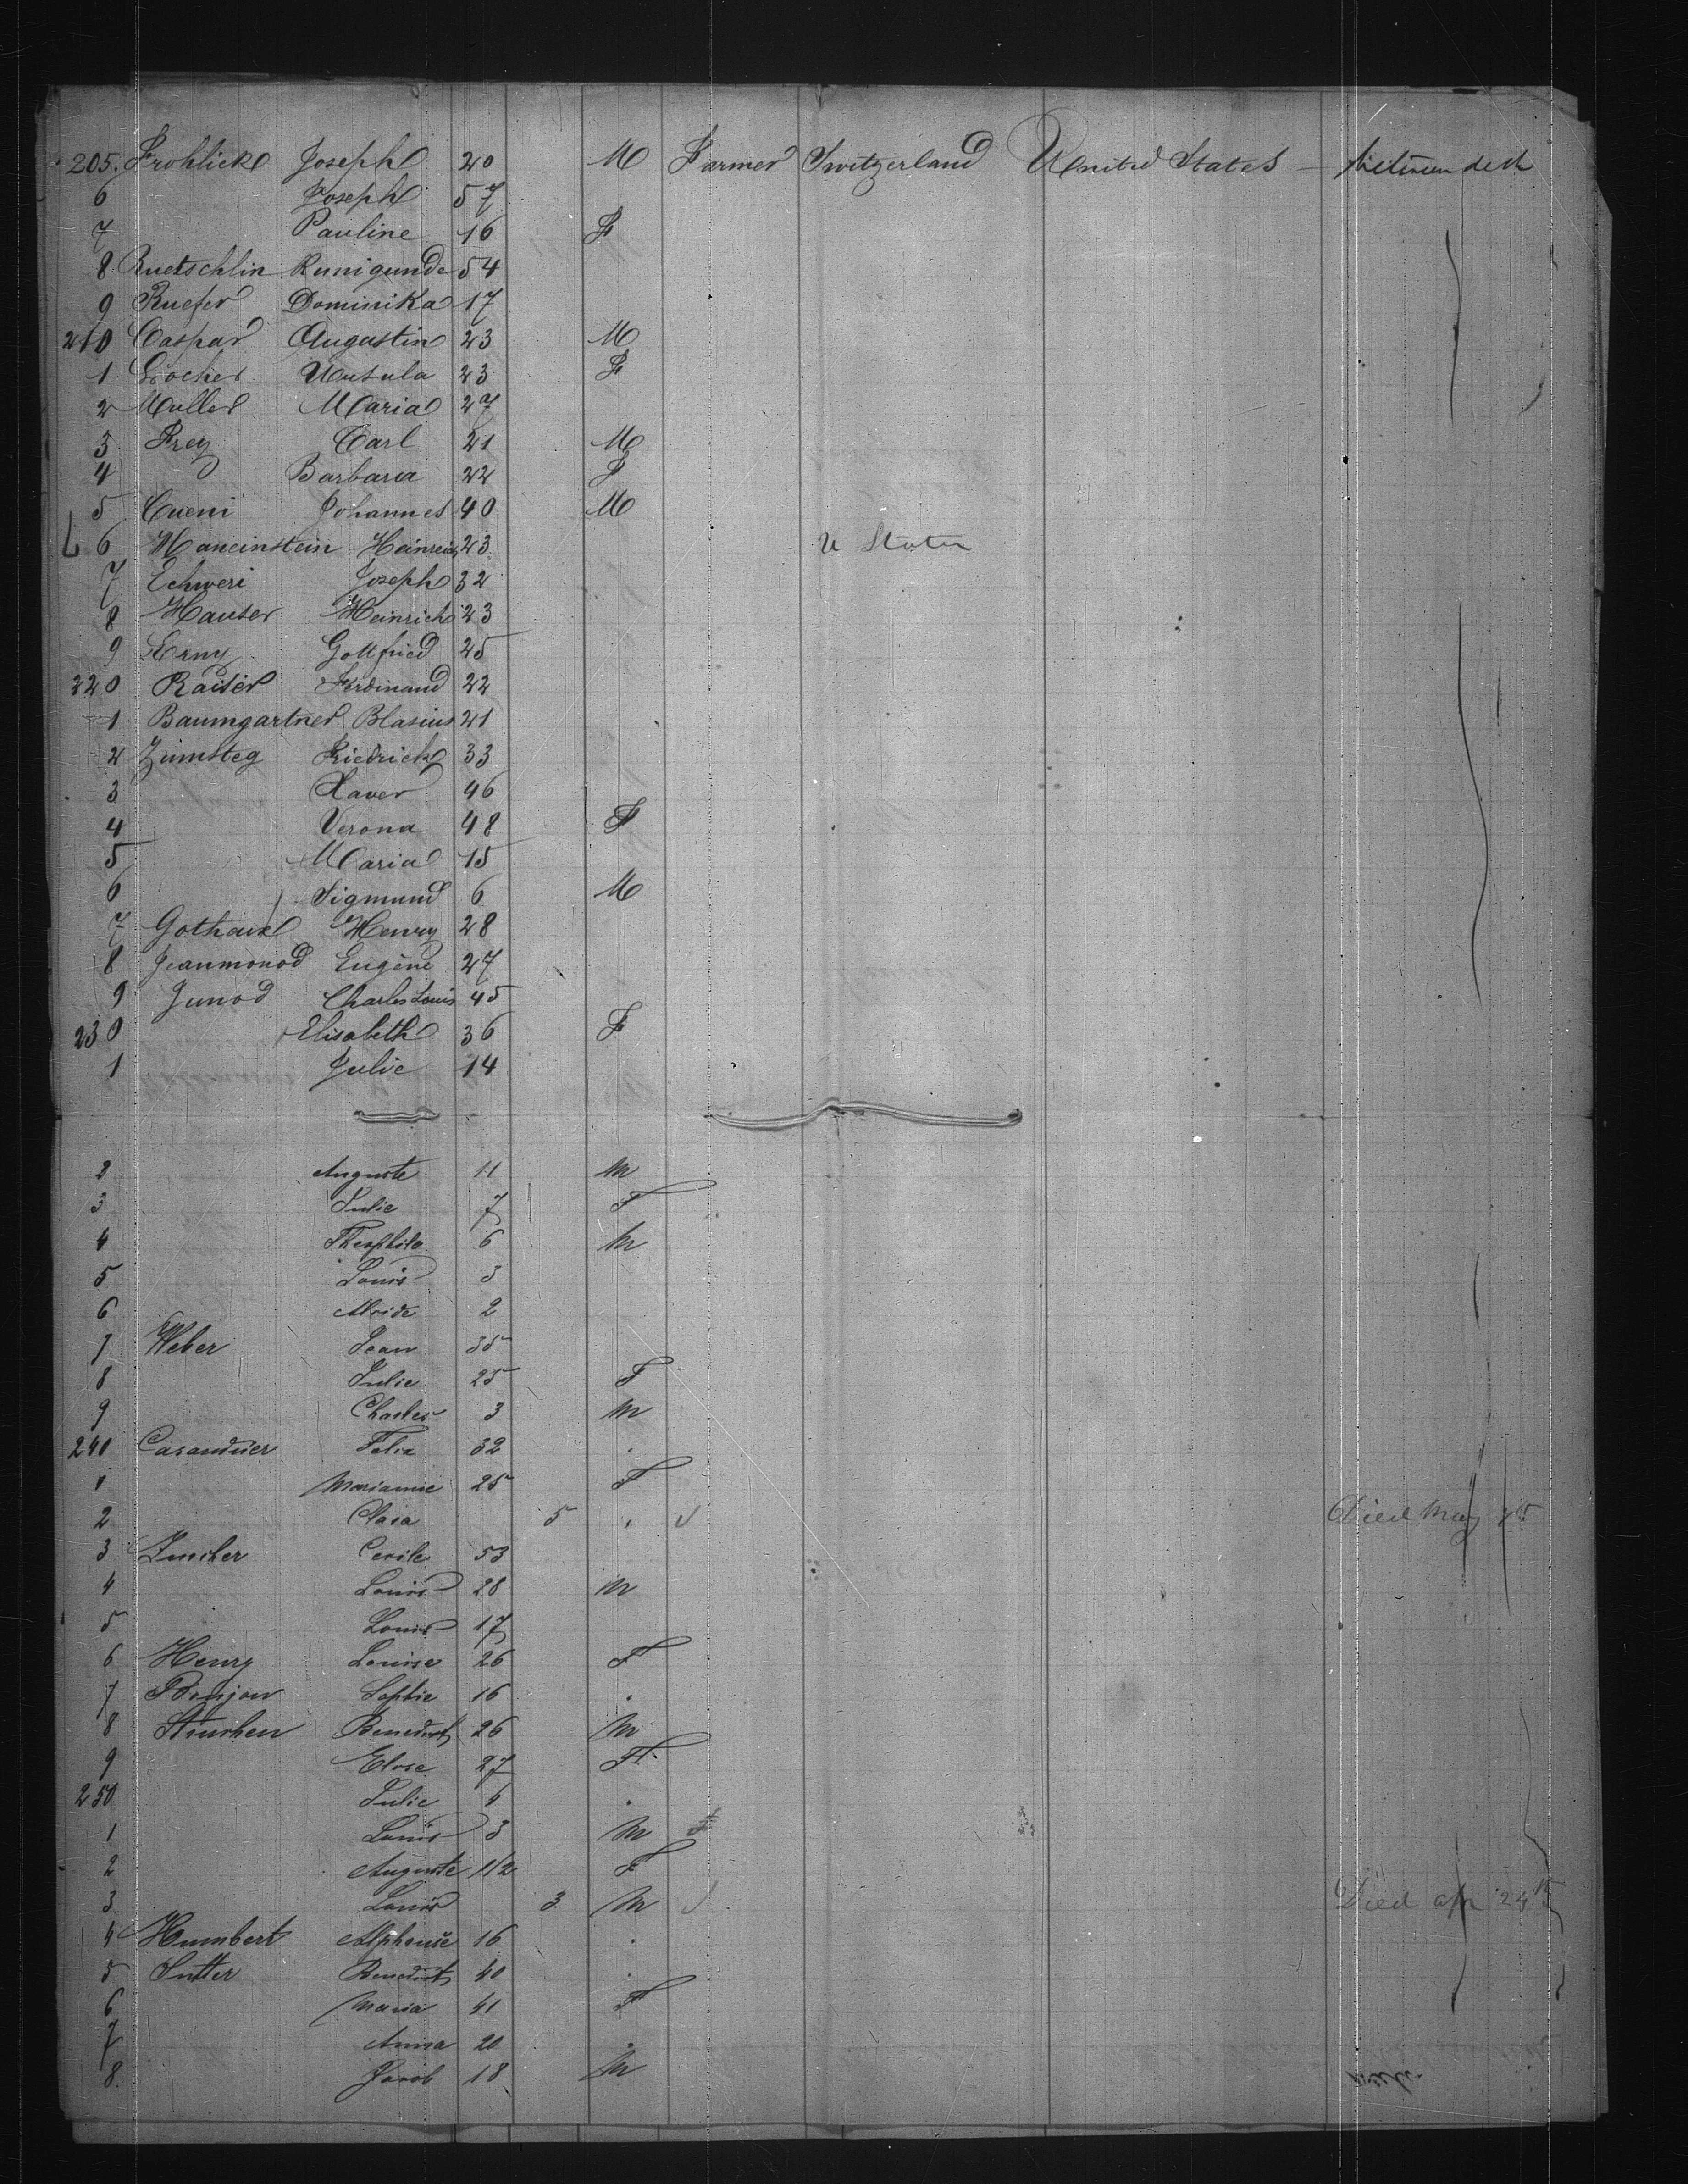 205. Frohlick Joseph 20 M Farmer Switzerland United States — between deck
6 Joseph 57
7 Pauline 16 F
8 Ruetschlin Kunigunde 54
9 Ruefer Dominika 17
210 Caspar Augustin 23 M
1 Locher Ursula 23 F
2 Muller Maria 27
3 Frey Carl 21 M
4 Barbara 22 F
5 Cueni Johannes 40 M
L 6 Haneinstein Heinrich 23 U States
7 Echweri Joseph 32
8 Hauser Heinrich 23
9 Erny Gottfried 25
220 Raiser Ferdinand 22
1 Baumgartner Blasius 21
2 Zumsteg Friedrick 33
3 Xaver 46
4 Verona 48 F
5 Maria 15
6 Sigmund 6 M
7 Henry 28
8 Jeanmonod Eugène 27
9 Junod Charles Louis 45
230 Elisabeth 36 F
1 Julie 14
2 Auguste 11 M
3 Julie 7 F
4 Theophile 6 M
5 Louis 3
6 2
7 Weber Jean 35
8 Julie 25 F
9 Charles 3 M
240 Casanduer Felix 32
1 Marianne 25 F
2 Clara 5 Died May
3 Cecile 53
4 Louis 28 M
5 Louis 17
6 Henry Louise 26 F
7 Sophie 16
8 Benedict 26 M
9 Elose 27 F
250 Julie
1 Louis 3 M
2 Auguste 11/2 F
3 Louis 3 M Died apr 24th
4 Humbert Alphonse 16
5 Sutter Benedict 40
6 Maria 41 F
7 Anna 20
8. Jacob 18 M